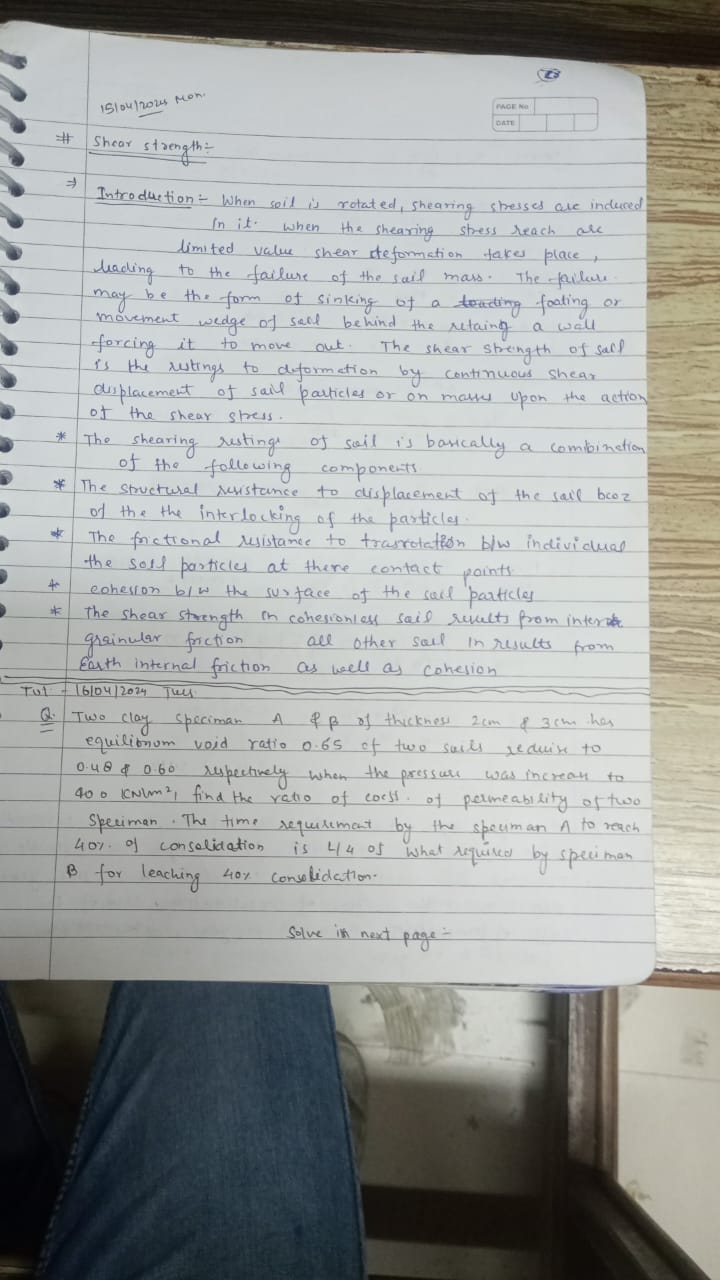 23
15/04/2024 Mon.
PAGE No
DATE
# Shear strength:-
⇒ Introduction:- When soil is rotated, shearing stresses are induced
in it. when the shearing stress reach are
limited value shear deformation takes place,
leading to the failure of the soil mass. The failure
may be the form of sinking of a footing or
movement wedge of soil behind the retaing a wall
forcing it to move out. The shear strength of soil
is the restings to deformation by continuous shear
displacement of soil particles or on masses upon the action
of the shear stress.
* The shearing restings of soil is basically a combination
of the following components
* The structural resistance to displacement of the soil bcoz
of the the interlocking of the particles.
* The frictional resistance to b/w individual
the soil particles at there contact points
* cohesion b/w the surface of the soil particles
* The shear strength in cohesionless soil results from inter
grainular friction all other soil in results from
Earth internal friction as well as cohesion
Tut - 16/04/2024 Tues
Q. Two clay speciman A & B of thickness 2cm & 3cm has
equilibrium void ratio 0.65 of two soils reduise to
0.48 & 0.60 respectively when the pressure was increas to
400 KN/m², find the ratio of coess. of permeability of two
Speciman. The time requirement by the speciman A to reach
40% of consolidation is 1/4 of what required by speciman
B for leaching 40% consolidation.
Solve in next page:-